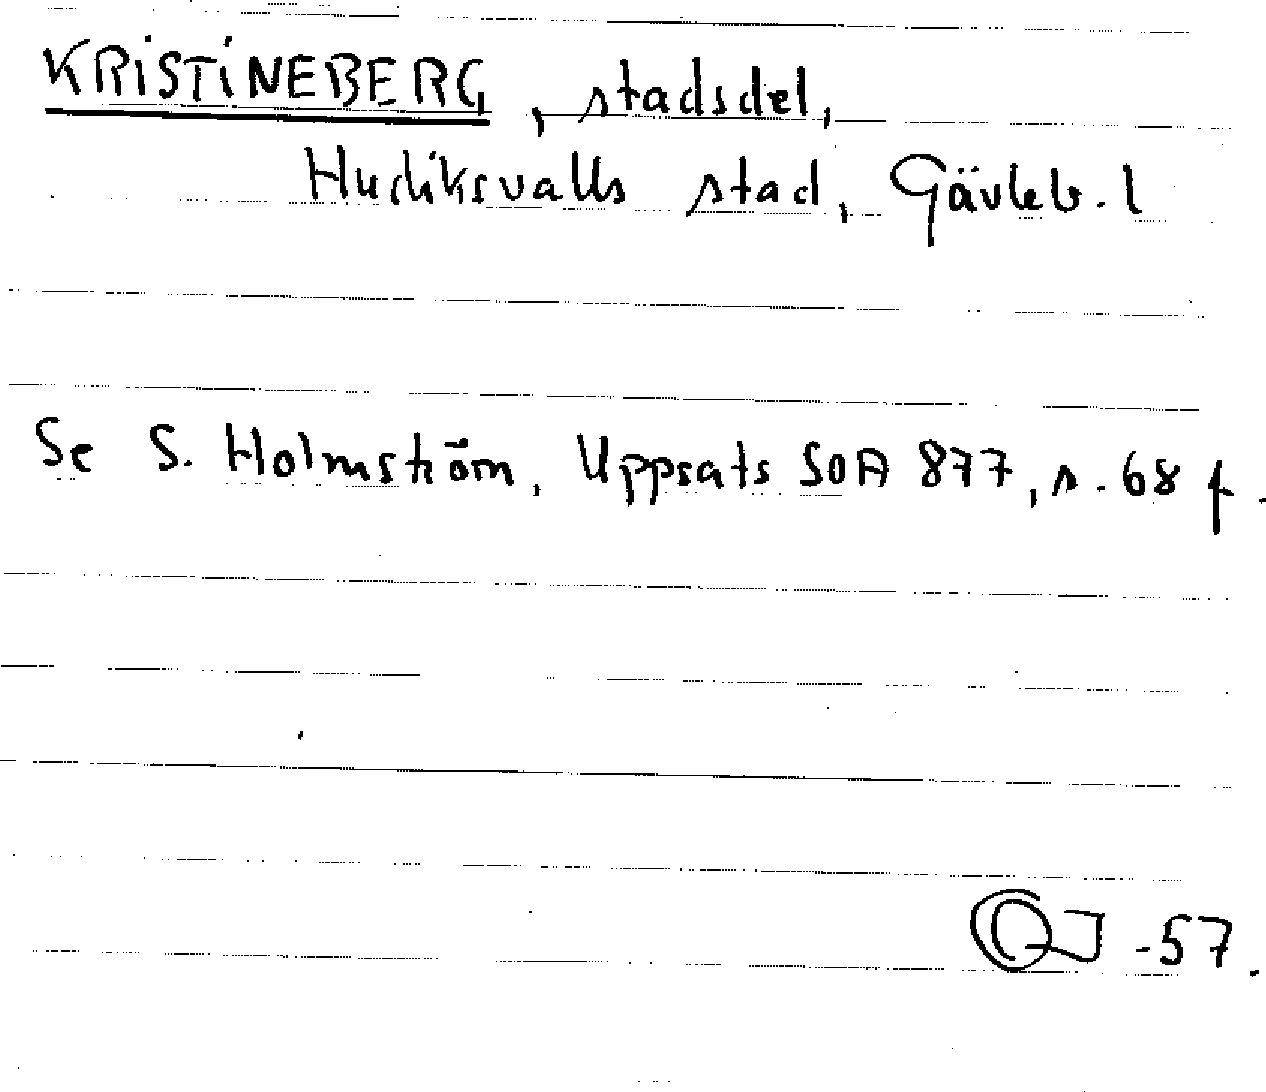 KRISTINEBERG, stadsdel,
Hudiksvalls stad, Gävleb. l
Se S. Holmström, Uppsats SOA 877, s. 68 f.
-57.